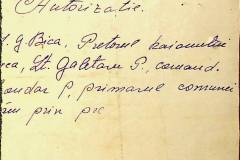 Autorizație.
I. G. Bica, Pretorul raionului
Lt. Galetaru P., comand.
P. primarul comunei
prin pre